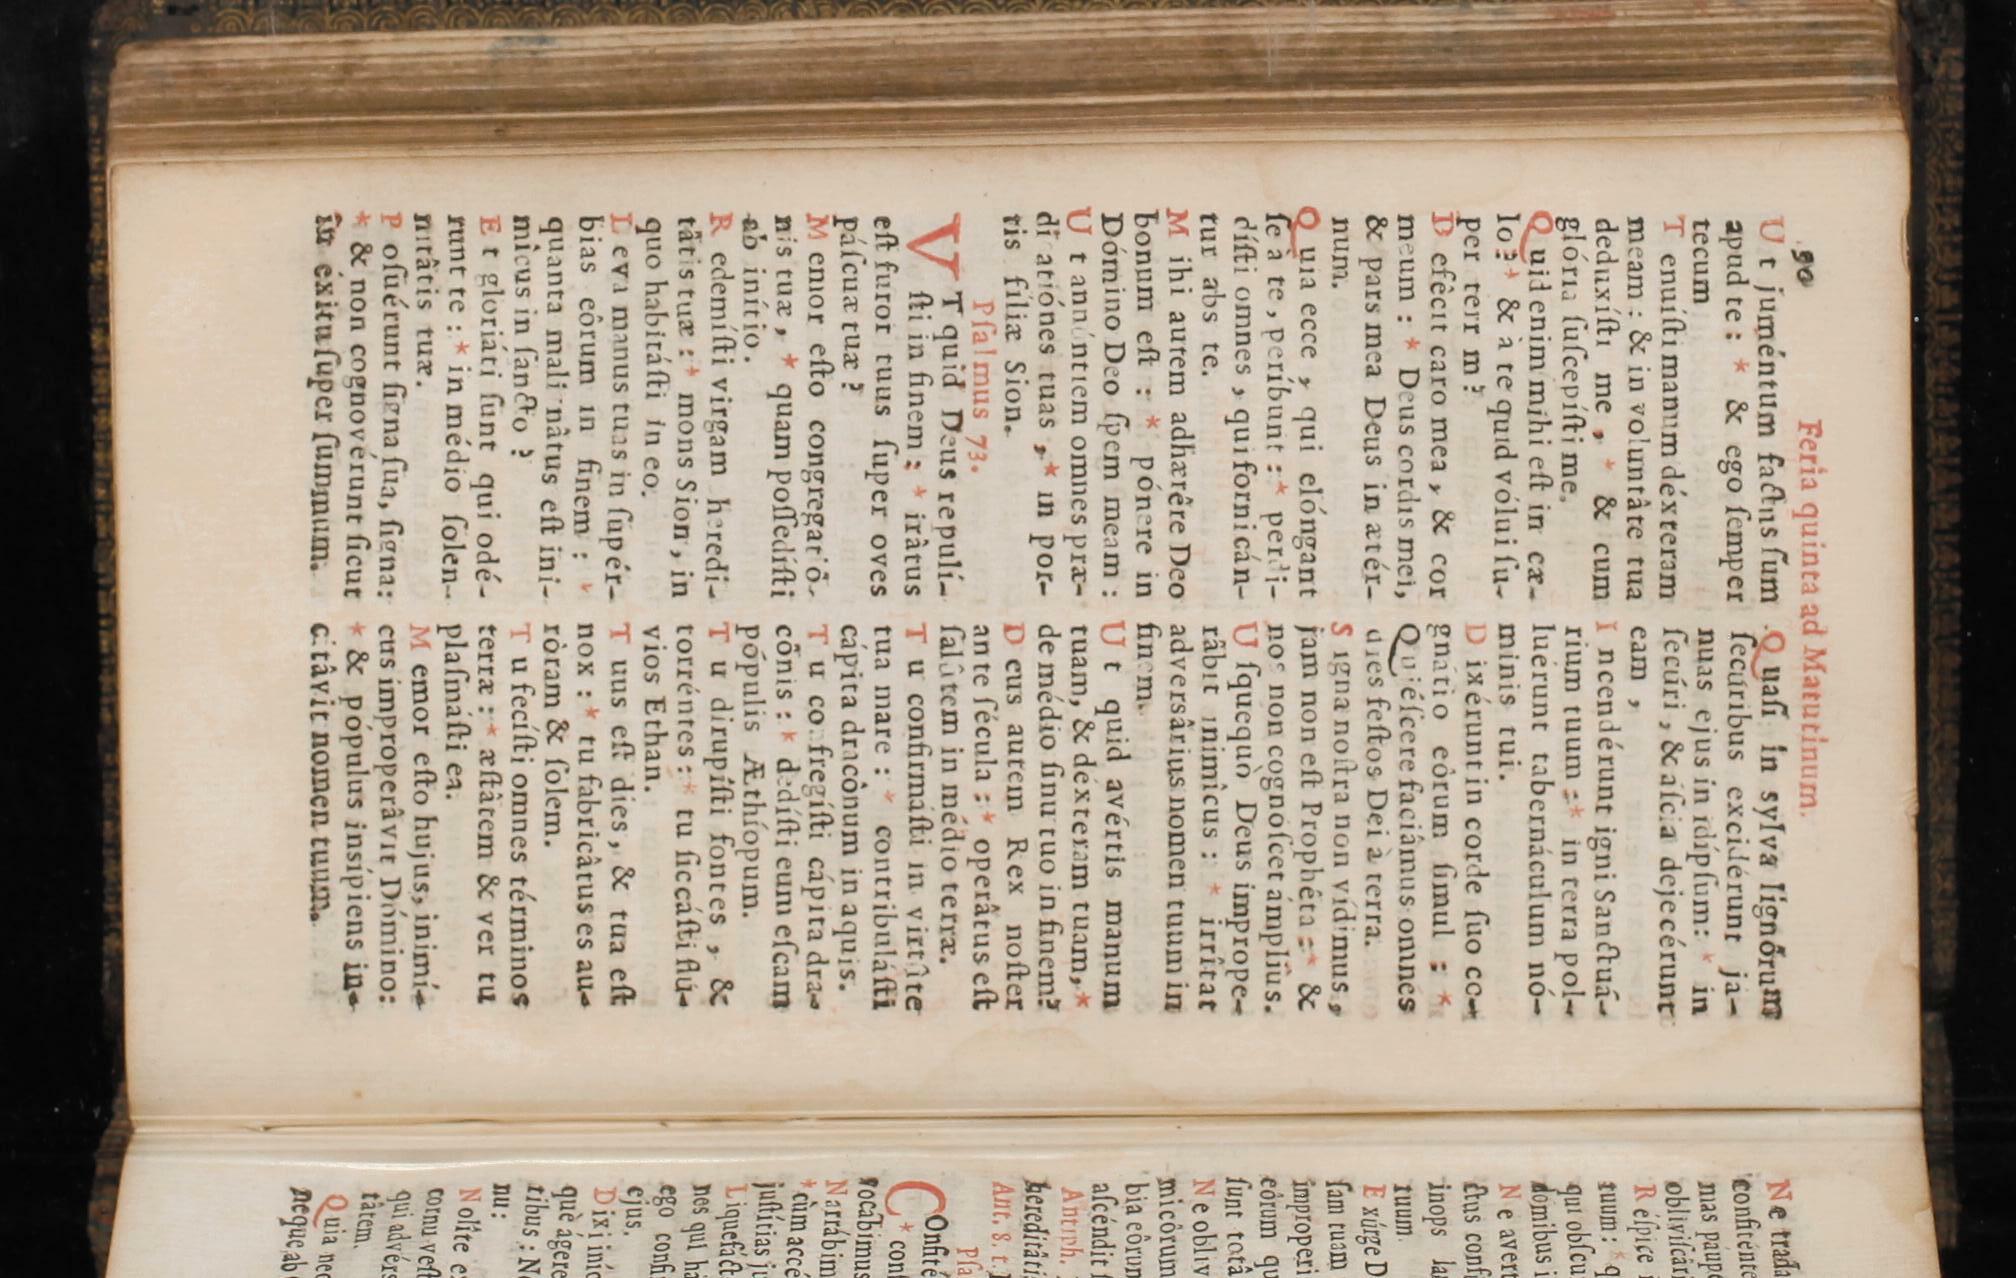 90
Feria quinta ad Matutinum.
Ut juméntum factus sum
apud te : * & ego semper
tecum
Tenuísti manum déxteram
meam : & in voluntâte tua
deduxísti me, * & cum
glória suscepísti me.
Quid enim mihi est in cæ-
lo ? * & à te quid vólui su-
per terr m ?
Defêcit caro mea, & cor
meum : * Deus cordis mei,
& pars mea Deus in ætér-
num.
Quia ecce, qui elóngant
se à te, períbunt : * perdi-
dísti omnes, qui fornicán-
tur abs te.
Mihi autem adhærêre Deo
bonum est : * pónere in
Dómino Deo spem meam :
Ut annúntiem omnes præ-
dicatiónes tuas, * in por-
tis fíliæ Sion.
Psalmus 73.
VT quid Deus repulí-
sti in finem : * irâtus
est furor tuus super oves
páscuæ tuæ ?
Memor esto congregatiõ-
nis tuæ, * quam possedísti
ab inítio.
Redemísti virgam heredi-
tâtis tuæ : * mons Sion, in
quo habitásti in eo.
Leva manus tuas in supér-
bias eôrum in finem : *
quanta malignâtus est ini-
mîcus in sancto ?
Et gloriáti sunt qui odé-
runt te : * in médio solen-
nitâtis tuæ.
Posuérunt signa sua, signa :
* & non cognovérunt sicut
in éxitu super summum.
Quasi in sylva lignõrum
secúribus excidérunt ja-
nuas ejus in idípsum : * in
secúri, & áscia dejecérunt
eam,
Incendérunt igni Sanctuá-
rium tuum : * in terra pol-
luérunt tabernáculum nó-
minis tui.
Dixérunt in corde suo co-
gnátio eôrum simul : *
Quiéscere faciâmus omnes
dies festos Dei à terra.
Signa nostra non vídimus,
jam non est Prophêta : * &
nos non cognoscet ámpliùs.
Usquequò Deus imprope-
râbit inimîcus : * irrîtat
adversârius nomen tuum in
finem.
Ut quid avértis manum
tuam, & déxteram tuam, *
de médio sinu tuo in finem ?
Deus autem Rex noster
ante sécula : * operâtus est
salûtem in médio terræ.
Tu confirmásti in virtûte
tua mare : * contribulásti
cápita dracônum in aquis.
Tu confregísti cápita dra-
cõnis : * dedísti eum escam
pópulis Æthíopum.
Tu dirupísti fontes, &
torréntes : * tu siccásti flú-
vios Ethan.
Tuus est dies, & tua est
nox : * tu fabricâtus es au-
ròram & solem.
Tu fecísti omnes términos
terræ : * æstâtem & ver tu
plasmásti ea.
Memor esto hujus, inimí-
cus improperâvit Dómino :
* & pópulus insípiens in-
citâvit nomen tuum.
Ne trada
confiténte
mas páupe
obliviscári
Réspice i
tuum : * q
qui obscu
domibus i
Ne avert
ctus conf
inops lau
tuum.
Exúrge D
sam tuam
improperi
eórum qu
sunt totâ
Ne obliv
micôrum
bia eôrum
ascéndit s
Antiph.
hereditâti
Ant. 8. t.
Psa
COnfité
* conf
vocábimus
Narrábim
* cùm accé
justítias ju
Liquefáct
nes qui ha
ego confi
ejus.
Dixi iníc
què ágere
tíbus : No
nu :
Nolíte ex
cornu vest
qui advérs
tâtem.
Quia nec
neque ab